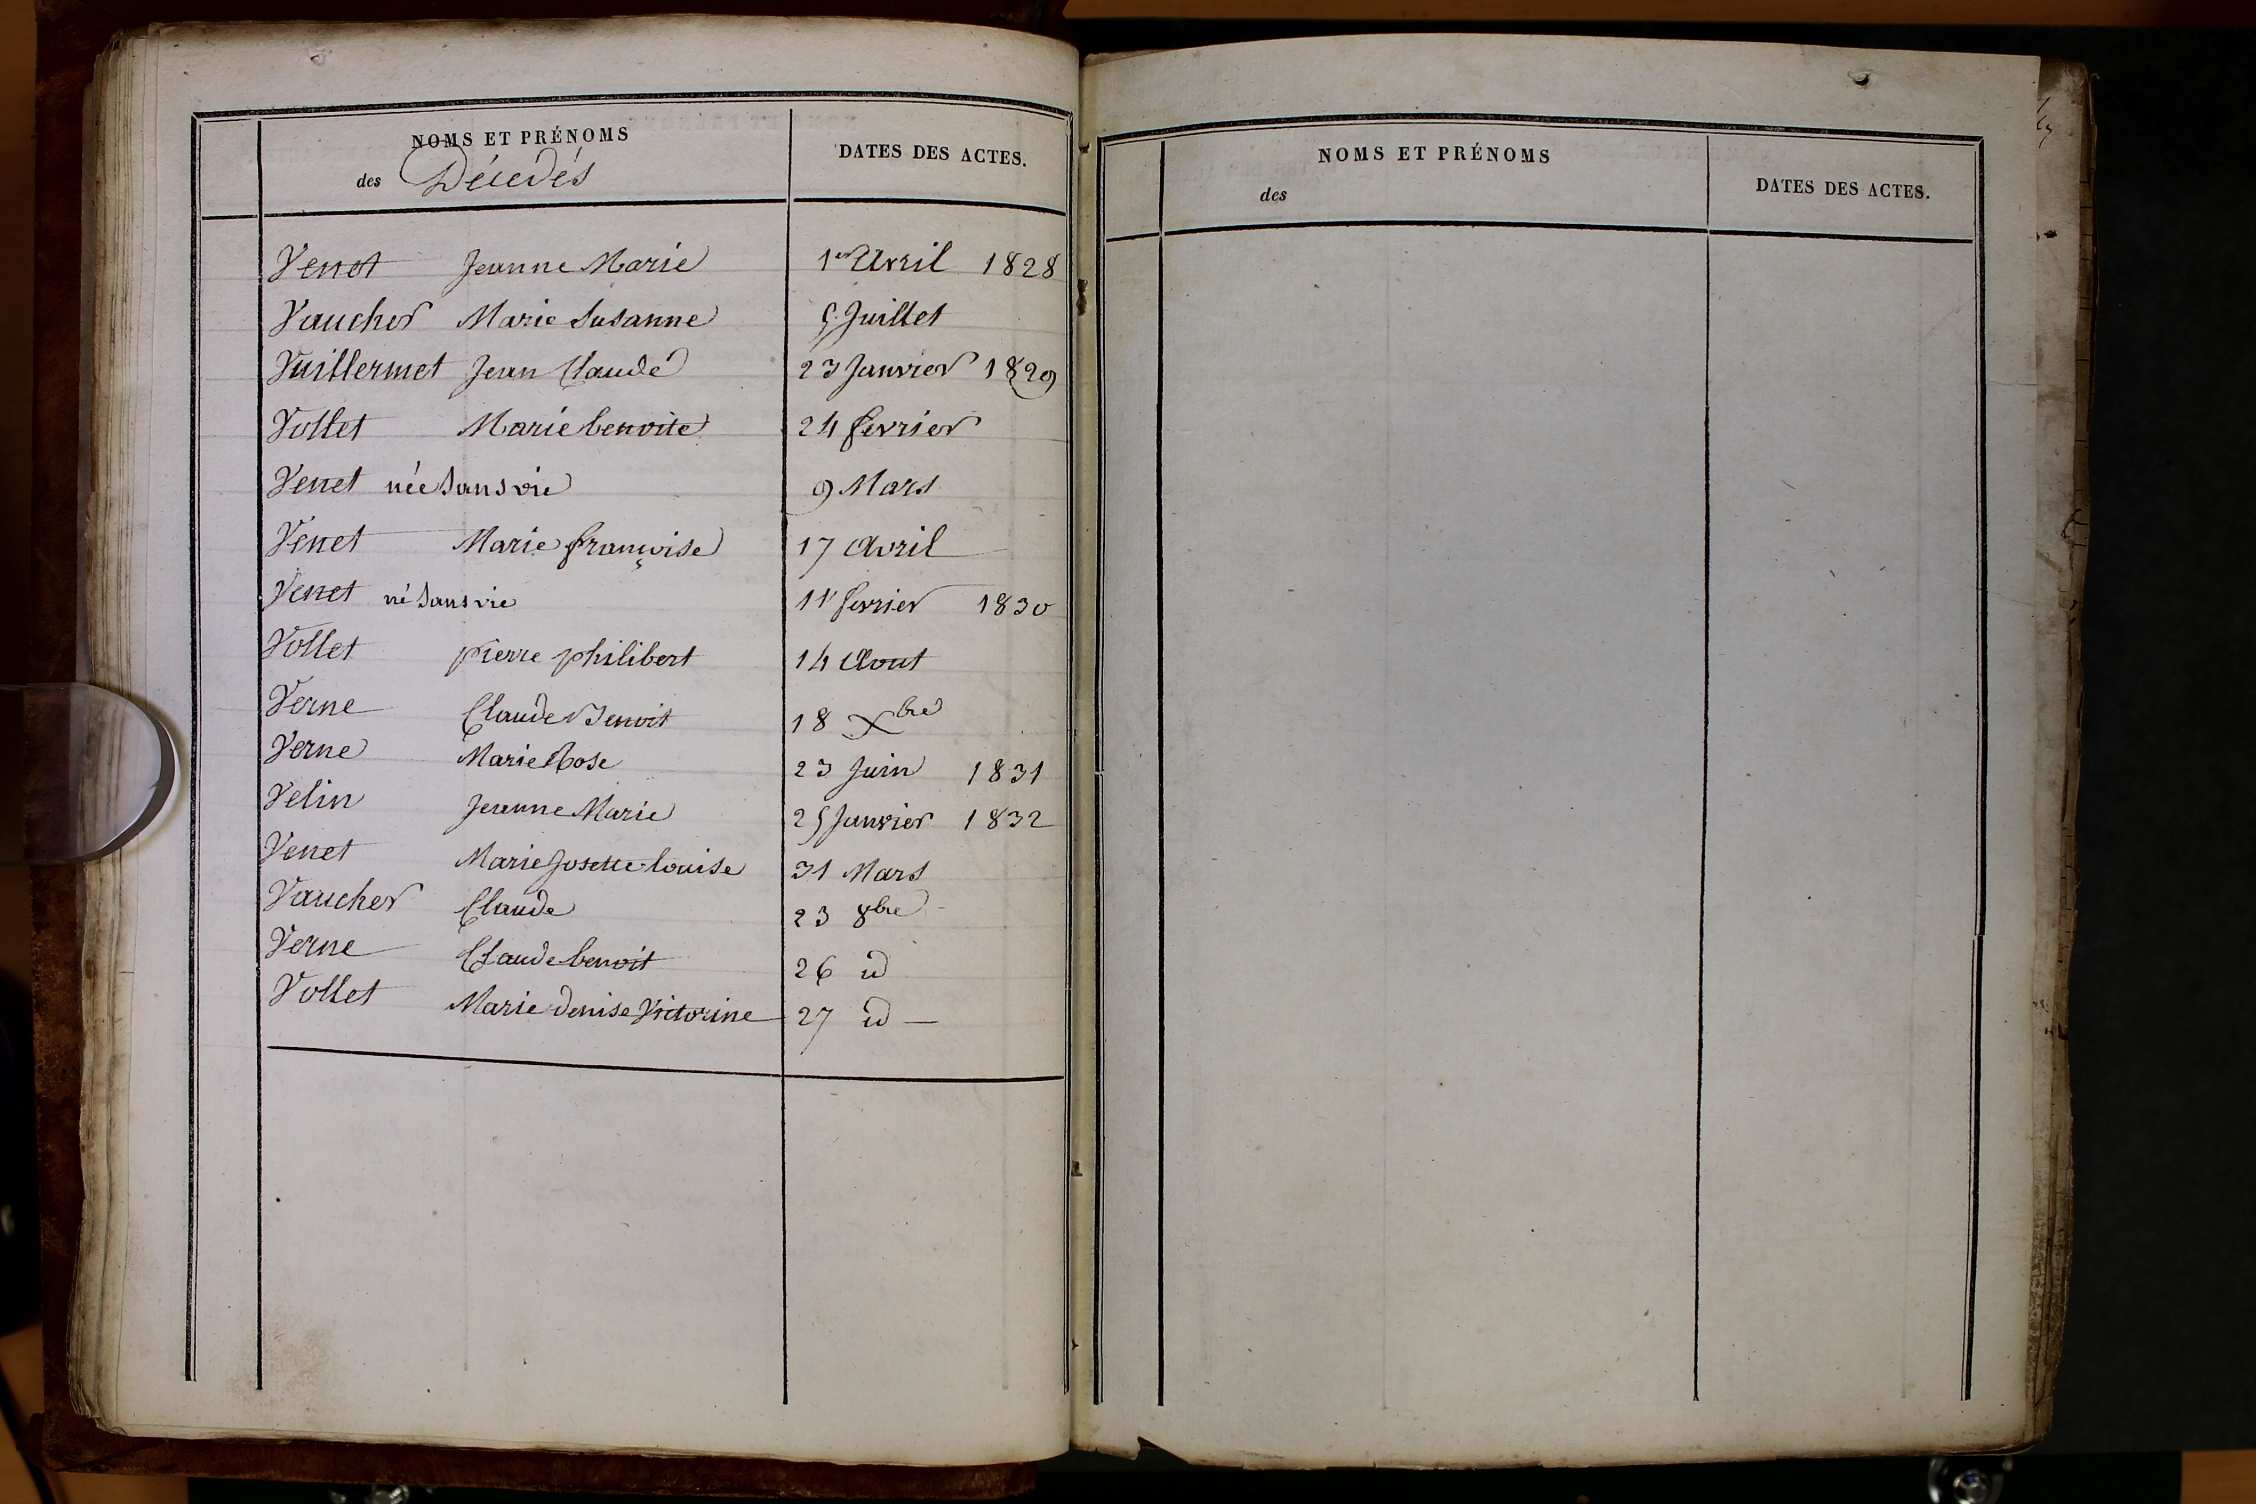 NOMS ET PRÉNOMS
des Décédés
DATES DES ACTES.
Venet Jeanne Marie 1er Avril 1828
Vaucher Marie Susanne 5 Juillet
Vuillermet Jean Claude 23 Janvier 1829
Vollet Marie benoite 24 fevrier
Venet née Sans vie 9 Mars
Venet Marie françoise 17 Avril
Venet né Sans vie 11 fevrier 1830
Vollet pierre philibert 14 Aout
Verne Claude Benoit 18 Xbre
Verne Marie Rose 23 Juin 1831
Velin Jeanne Marie 25 Janvier 1832
Venet Marie Josette louise 31 Mars
Vaucher Claude 23 8bre
Verne Claude benoit 26 id
Vollet Marie denise Victorine 27 id —
NOMS ET PRÉNOMS
des
DATES DES ACTES.